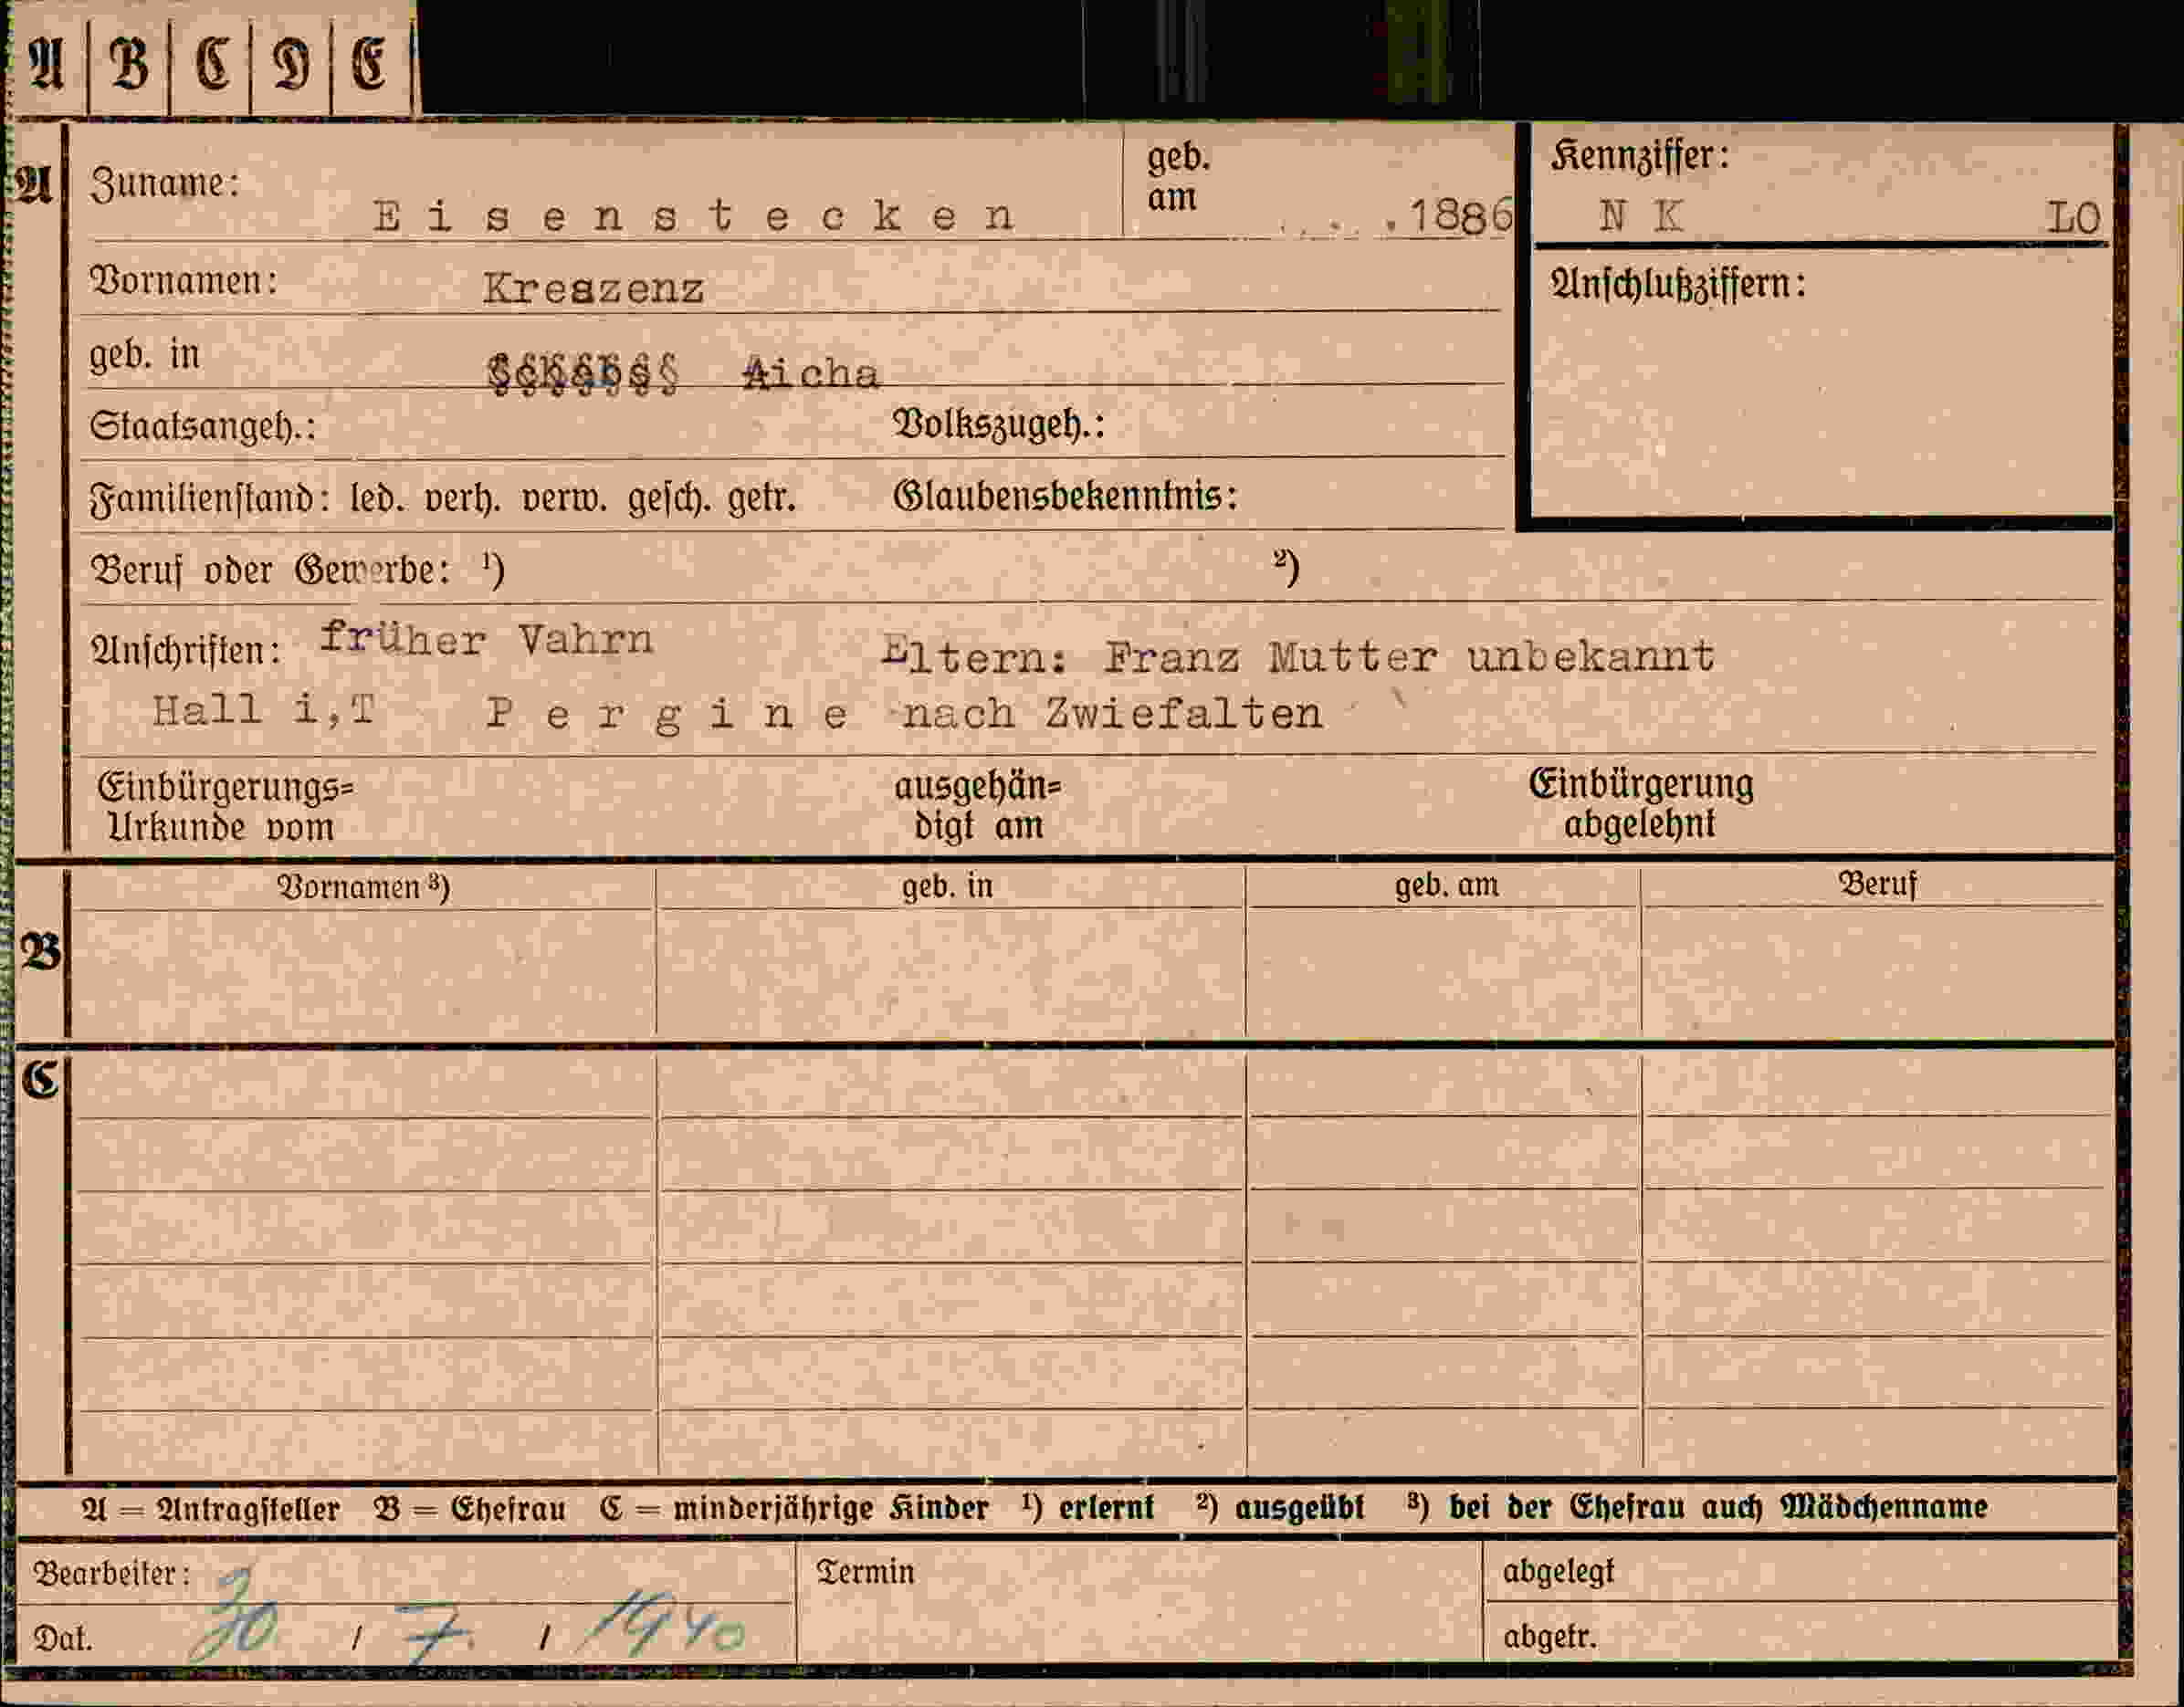 A B C D E
A Zuname: Eisenstecken geb. am . . .1886 Kennziffer: N K LO
Vornamen: Kreszenz Anschlußziffern:
geb. in Aicha
Staatsangeh.: Volkszugeh.:
Familienstand: led. verh. verw. gesch. getr. Glaubensbekenntnis:
Beruf oder Gewerbe: ¹) ²)
Anschriften: früher Vahrn Eltern: Franz Mutter unbekannt
Hall i,T Pergine nach Zwiefalten
Einbürgerungs= ausgehän= Einbürgerung
Urkunde vom digt am abgelehnt
Vornamen ³) geb. in geb. am Beruf
B
C
A = Antragsteller B = Ehefrau C = minderjährige Kinder ¹) erlernt ²) ausgeübt ³) bei der Ehefrau auch Mädchenname
Bearbeiter: Termin abgelegt
Dat. 30 / 7. / 1940 abgetr.